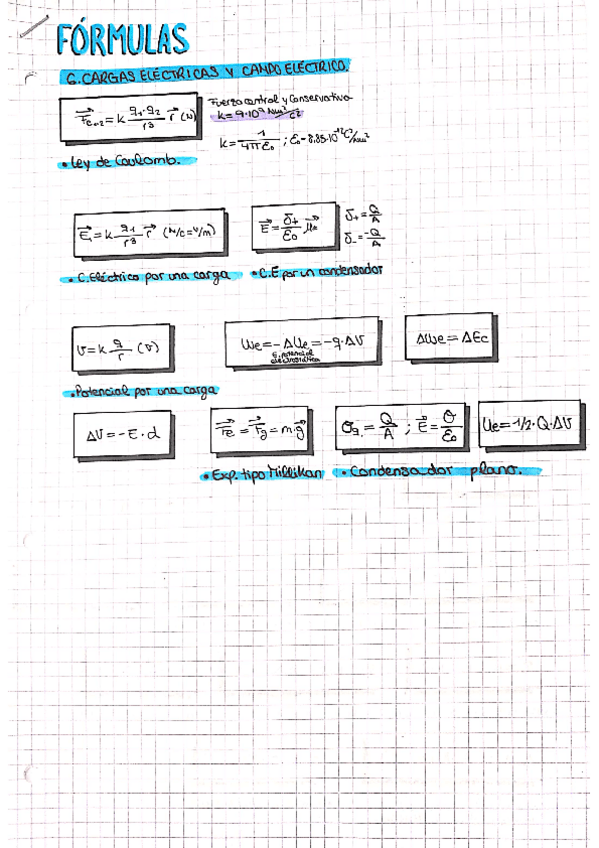 FÓRMULAS
6. CARGAS ELÉCTRICAS Y CAMPO ELÉCTRICO.
F⃗c₁₋₂ = k q₁·q₂/r³ r⃗ (N)
Fuerza central y conservativa
k = 9·10⁹ Nm²/C²
k = 1/4πε₀ ; ε₀ = 8,85·10⁻¹² C²/Nm²
• Ley de Coulomb.
E⃗₁ = k q₁/r³ r⃗ (N/C = V/m)
E⃗ = δ+/ε₀ μ⃗e
δ+ = Q/A
δ- = -Q/A
• C. Eléctrico por una carga
• C.E por un condensador
V = k q/r (V)
We = -ΔUe = -q·ΔV
E. potencial
electrostática
ΔWe = ΔEc
• Potencial por una carga
ΔV = -E·d
F⃗e = F⃗g = m·g⃗
σq = Q/A ; E⃗ = σ/ε₀
Ue = 1/2·Q·ΔV
• Exp. tipo Millikan
• Condensador plano.